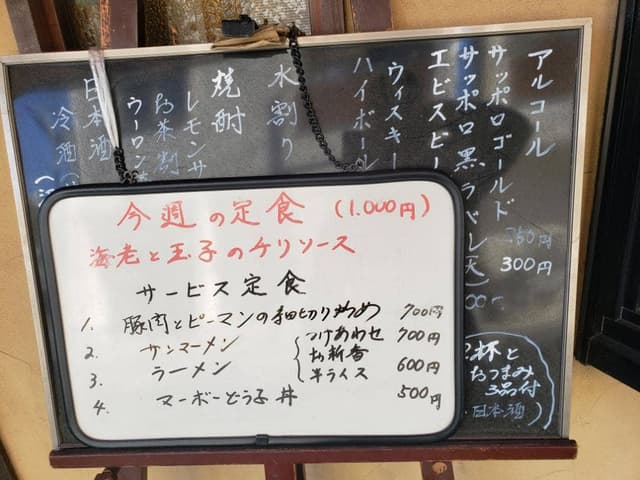 今週の定食 (1.000円)
海老と玉子のチリソース
サービス定食
1. 豚肉とピーマンの細切り炒め 700円
2. サンマーメン 700円
3. ラーメン 600円
つけあわせ
お新香
半ライス
4. マーボーどうふ丼 500円
アルコール
サッポロゴールド 300円
サッポロ黒ラベル(大)
エビスビー
ウィスキー
ハイボール
水割り
焼酎
レモンサ
お茶割
ウーロン
日本酒
冷酒
杯と
おつまみ
3品付
日本酒)